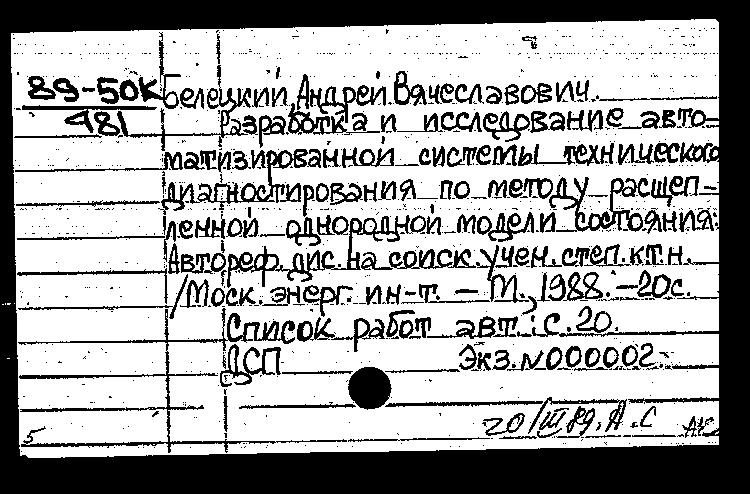 89-50К Белецкий, Андрей Вячеславович.
481 Разработка и исследование авто-
матизированной системы технического
диагностирования по методу расщеп-
ленной однородной модели состояния:
Автореф. дис. на соиск. учен. степ. к.т.н.
/Моск. энерг. ин-т. – М., 1988. – 20с.
Список работ авт.: с. 20.
ДСП Экз. N000002.
20/III 89. А.С
5